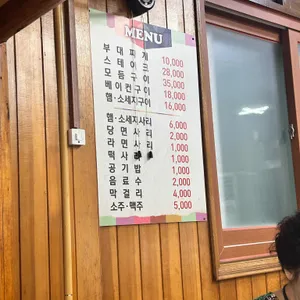 MENU
부대찌개 10,000
스테이크 28,000
모듬구이 35,000
베이컨구이 18,000
햄·소세지구이 16,000
햄·소세지사리 6,000
당면사리 2,000
라면사리 1,000
떡사리 1,000
공기밥 1,000
음료수 2,000
막걸리 4,000
소주·맥주 5,000